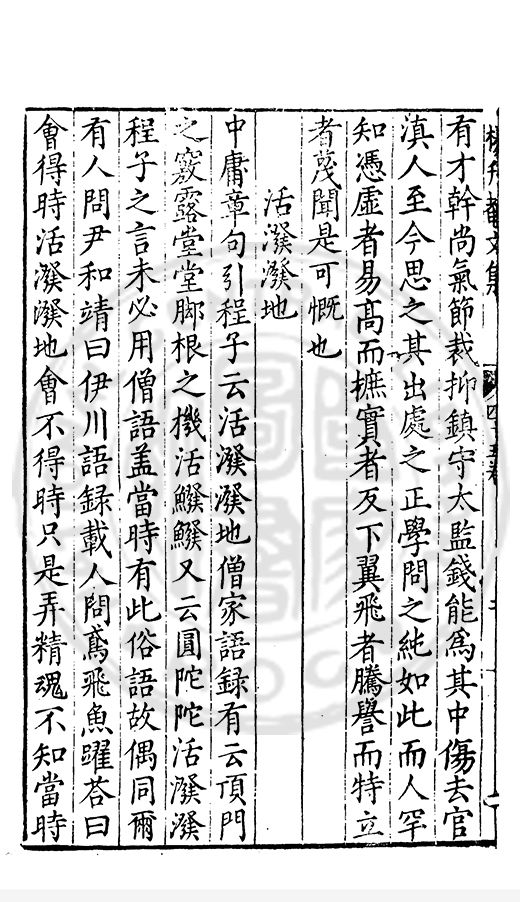 有才幹尚氣節裁抑鎮守太監錢能為其中傷去官
滇人至今思之其出處之正學問之純如此而人罕
知憑虛者易高而摭實者反下翼飛者騰譽而特立
者蔑聞是可慨也
活潑潑地
中庸章句引程子云活潑潑地僧家語録有云頂門
之竅露堂堂脚根之機活鱍鱍又云圓陀陀活潑潑
程子之言未必用僧語盖當時有此俗語故偶同爾
有人問尹和靖曰伊川語録載人問鳶飛魚躍荅曰
會得時活潑潑地會不得時只是弄精魂不知當時